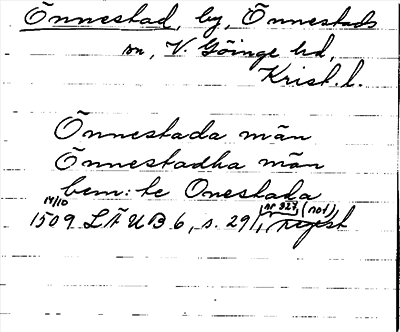 Önnestad, by, Önnestads
sn, V. Göinge hd,
Krist. l.
Önnestada män
Önnestadha män
bem: te Onestada
14/10
1509 LÄUB 6, s. 291, nr 327, (not) regest